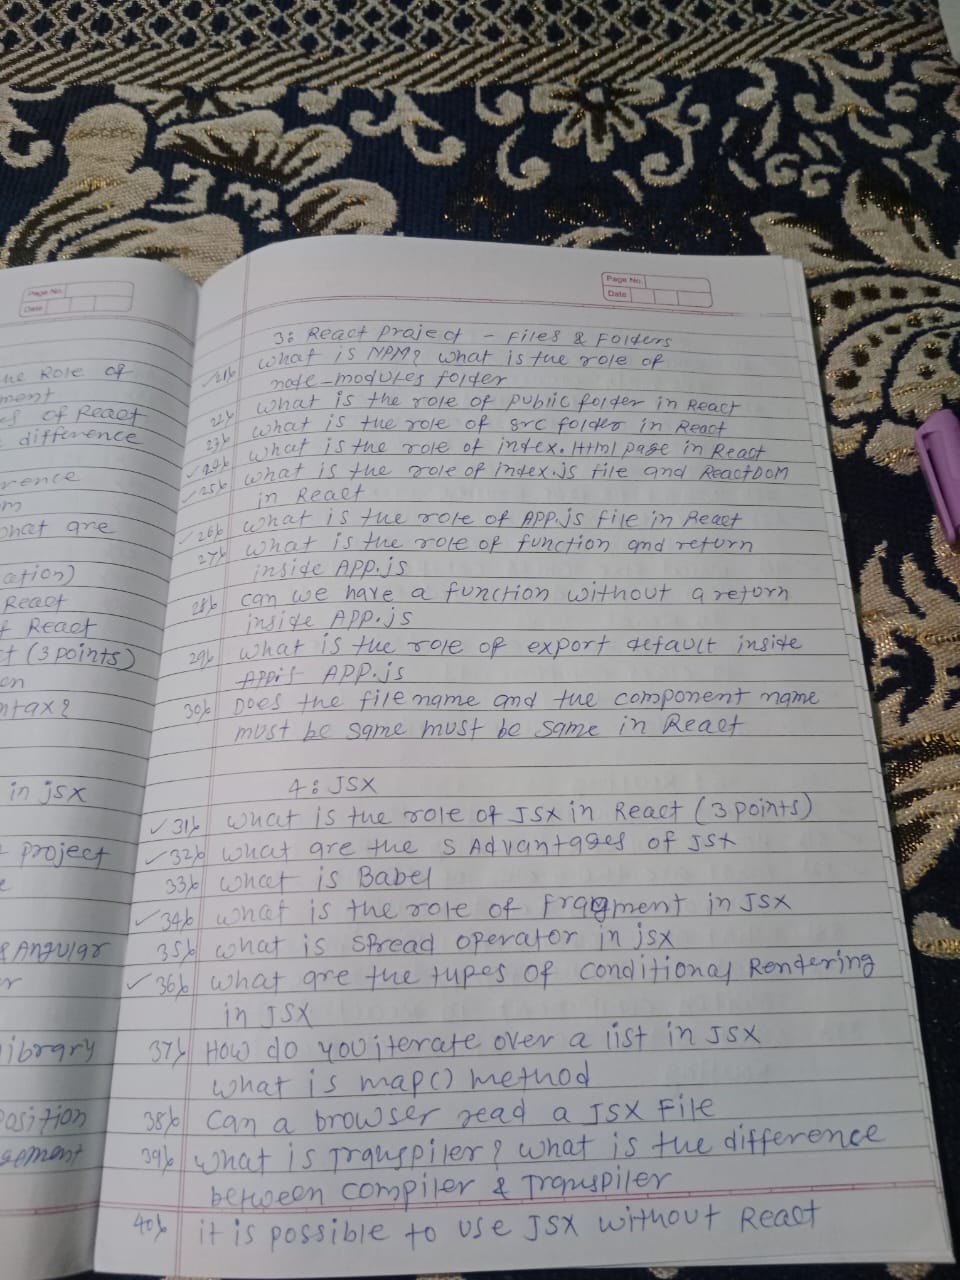 Page No.
Date
he Role of
ment
es of React
difference
rence
m
what are
ation)
React
f React
ct (3 points)
en
ntax?
in jsx
project
e
& Angular
r
library
position
gement
Page No.
Date
3: React Project - Files & Folders
21) What is NPM? what is the role of
node-modules folder
22) What is the role of public folder in React
23) what is the role of src folder in React
24) what is the role of index.Html page in React
25) what is the role of index.js file and ReactDOM
in React
26) what is the role of APP.js file in React
27) what is the role of function and return
inside APP.js
28) can we have a function without a return
inside APP.js
29) what is the role of export default inside
APP.js
30) Does the file name and the component name
must be same must be same in React
4: JSX
31) what is the role of JSX in React (3 points)
32) what are the 5 Advantages of JSX
33) what is Babel
34) what is the role of Fragment in JSX
35) what is spread operator in jsx
36) what are the tupes of conditional Rendering
in JSX
37) How do you iterate over a list in JSX
what is map() method
38) Can a browser read a JSX File
39) what is Transpiler? what is the difference
between compiler & Transpiler
40) it is possible to use JSX without React